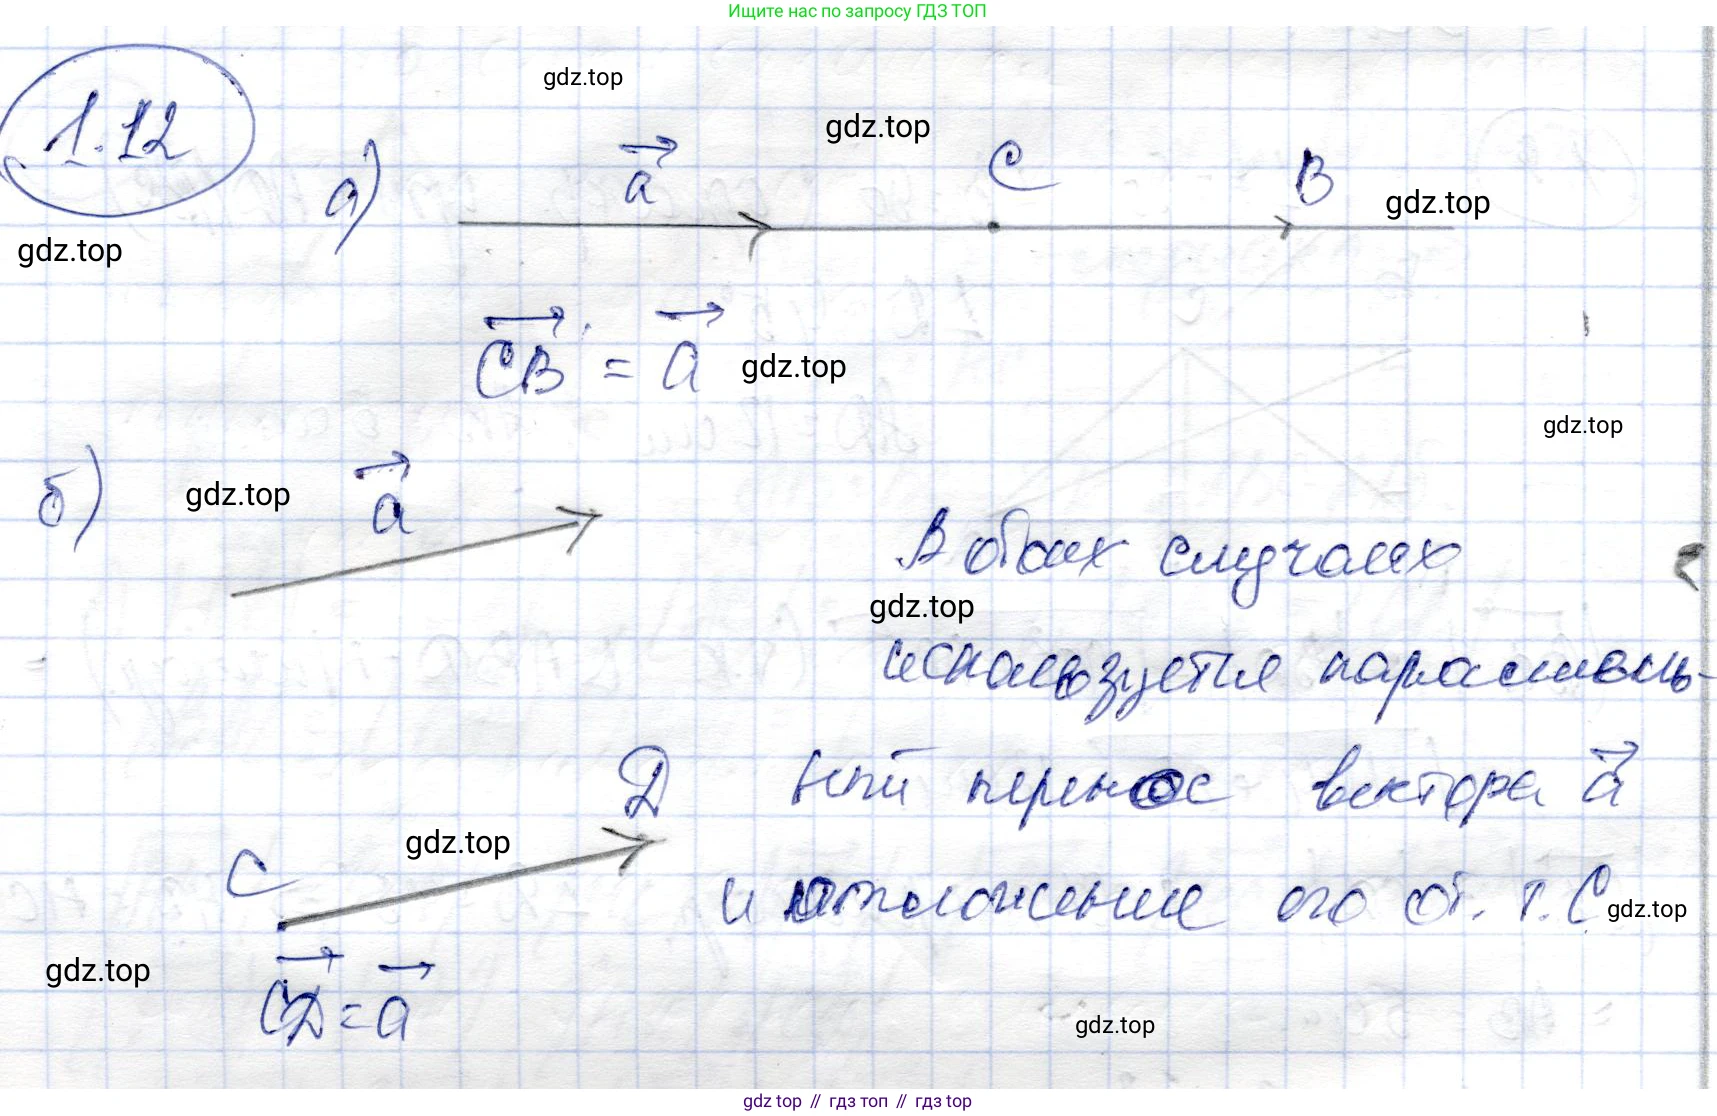 Ищите нас по запросу ГДЗ ТОП
1.12
gdz.top
gdz.top
а)
a
C
B
gdz.top
gdz.top
CB = a
gdz.top
gdz.top
б)
gdz.top
a
В обоих случаях
gdz.top
используется параллель-
D
ный перенос вектора a
C
gdz.top
и отложение его от. т. C
gdz.top
gdz.top
CD = a
gdz.top
gdz.top // гдз топ // гдз top